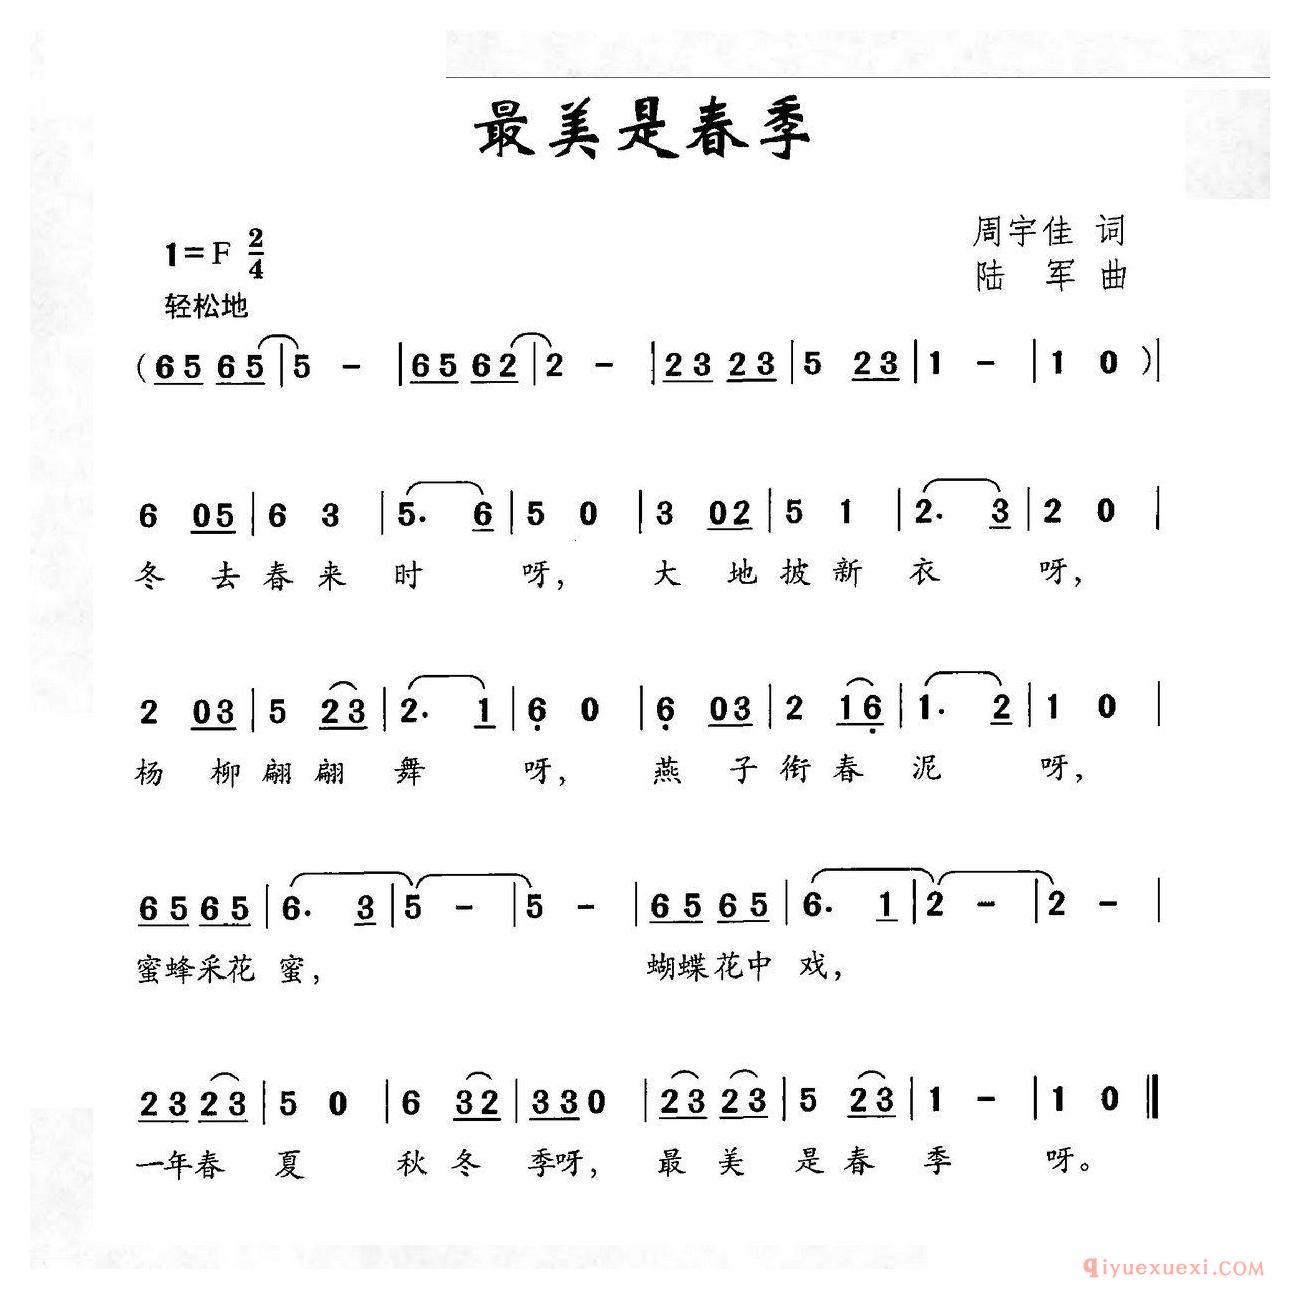 最美是春季
周宇佳 词
1=F 2/4
陆 军 曲
轻松地
(6 5 6 5 | 5 - | 6 5 6 2 | 2 - | 2 3 2 3 | 5 2 3 | 1 - | 1 0 )|
6 0 5 | 6 3 | 5. 6 | 5 0 | 3 0 2 | 5 1 | 2. 3 | 2 0 |
冬 去 春 来 时 呀， 大 地 披 新 衣 呀，
2 0 3 | 5 2 3 | 2. 1 | 6̣ 0 | 6̣ 0 3 | 2 1 6̣ | 1. 2 | 1 0 |
杨 柳 翩 翩 舞 呀， 燕 子 衔 春 泥 呀，
6 5 6 5 | 6. 3 | 5 - | 5 - | 6 5 6 5 | 6. 1 | 2 - | 2 - |
蜜蜂采花 蜜， 蝴蝶花中 戏，
2 3 2 3 | 5 0 | 6 3 2 | 3 3 0 | 2 3 2 3 | 5 2 3 | 1 - | 1 0 ‖
一年春 夏 秋 冬 季呀， 最 美 是 春 季 呀。
qiyuexuexi.COM